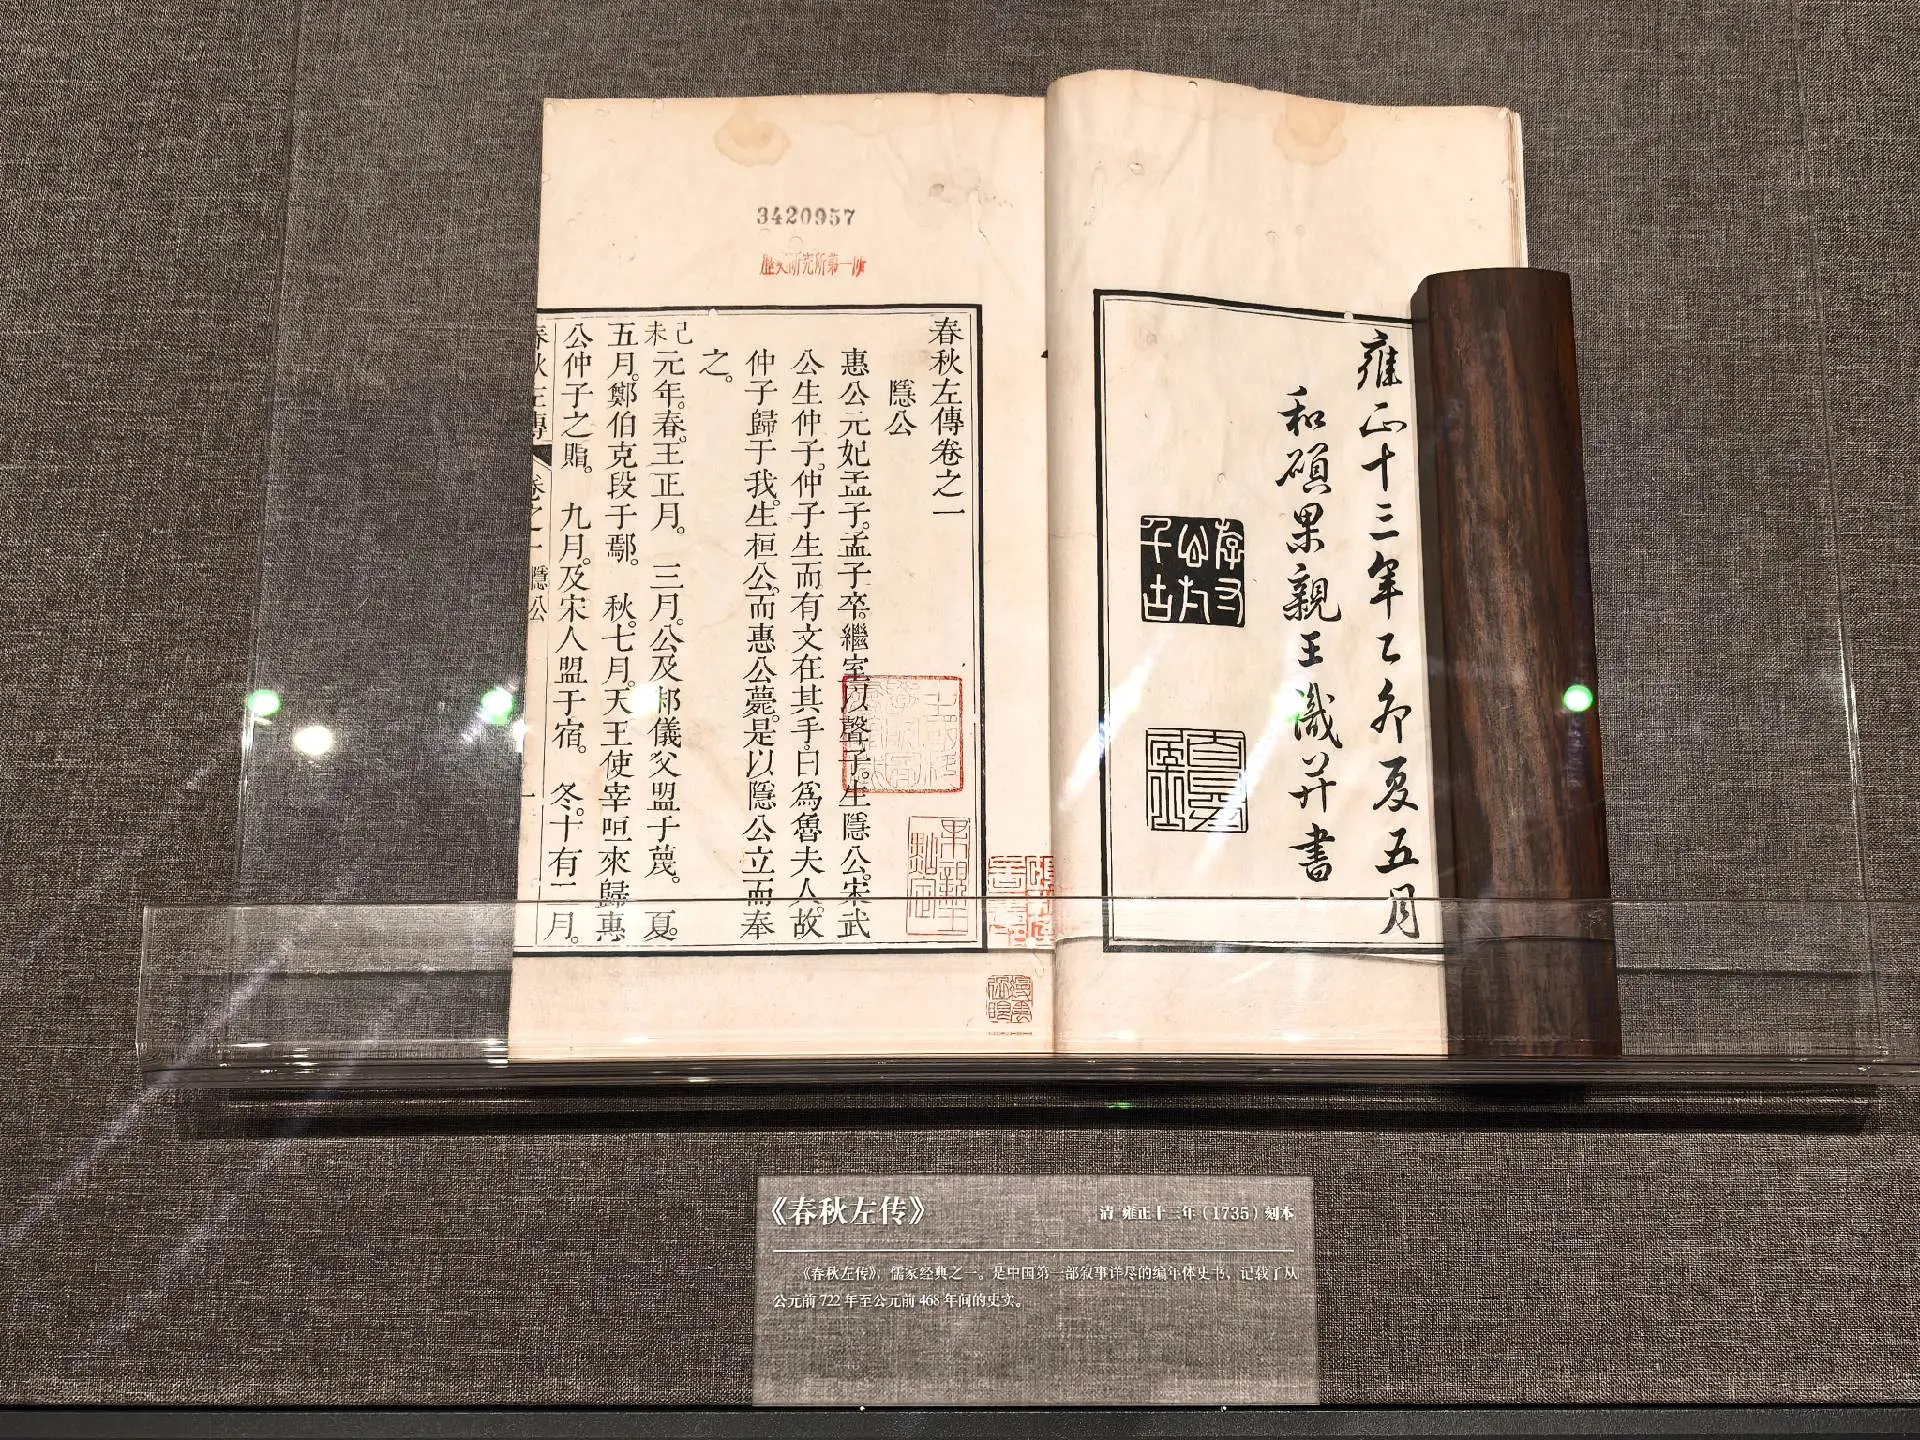 雍正十三年乙夘夏五月
和碩果親王識并書
3420957
歷史研究所第一所
春秋左傳卷之一
隱公
惠公元妃孟子。孟子卒。繼室以聲子。生隱公。宋武
公生仲子。仲子生而有文在其手。曰爲魯夫人。故
仲子歸于我。生桓公。而惠公薨。是以隱公立而奉
之。
己未元年。春。王正月。 三月。公及邾儀父盟于蔑。 夏。
五月。鄭伯克段于鄢。 秋。七月。天王使宰咺來歸惠
公仲子之賵。 九月。及宋人盟于宿。 冬。十有二月。
春秋左傳 卷之一 隱公 一
《春秋左传》
清 雍正十三年（1735）刻本
《春秋左传》，儒家经典之一。是中国第一部叙事详尽的编年体史书，记载了从
公元前 722 年至公元前 468 年间的史实。